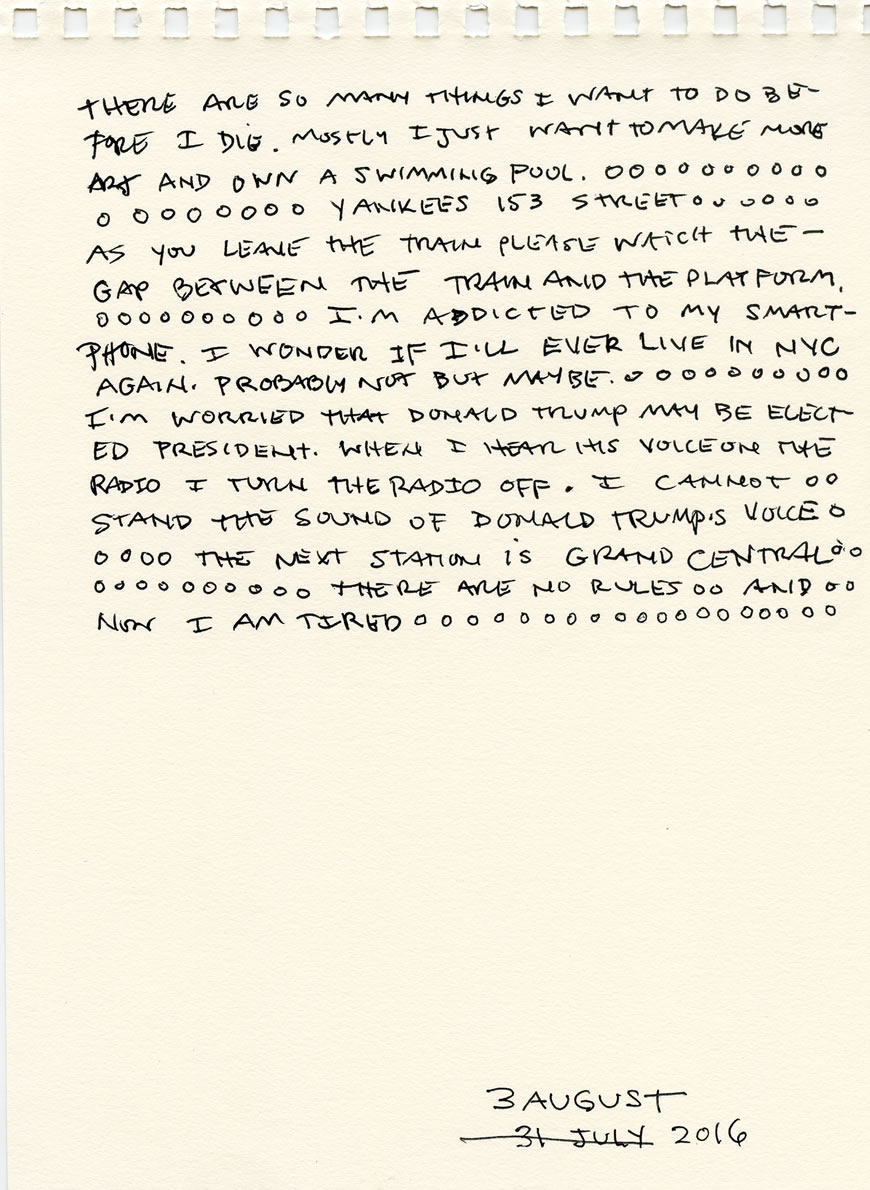 THERE ARE SO MANY THINGS I WANT TO DO BE-
FORE I DIE. MOSTLY I JUST WANT TO MAKE MORE
ART AND OWN A SWIMMING POOL. o o o o o o o o o o
o o o o o o o o YANKEES 153 STREET o o o o o o
AS YOU LEAVE THE TRAIN PLEASE WATCH THE -
GAP BETWEEN THE TRAIN AND THE PLATFORM.
o o o o o o o o o o I'M ADDICTED TO MY SMART-
PHONE. I WONDER IF I'LL EVER LIVE IN NYC
AGAIN. PROBABLY NOT BUT MAYBE. o o o o o o o o o o
I'M WORRIED THAT DONALD TRUMP MAY BE ELECT-
ED PRESIDENT. WHEN I HEAR HIS VOICE ON THE
RADIO I TURN THE RADIO OFF. I CANNOT o o
STAND THE SOUND OF DONALD TRUMP'S VOICE o
o o o o THE NEXT STATION IS GRAND CENTRAL o o
o o o o o o o o o o THERE ARE NO RULES o o AND o o
NOW I AM TIRED o o o o o o o o o o o o o o o o o o
3 AUGUST
31 JULY 2016